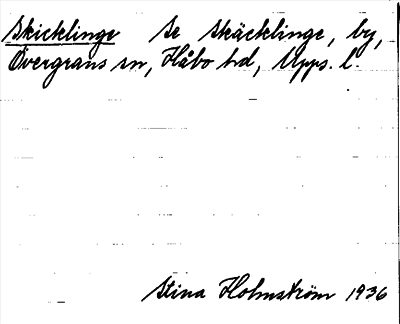 Skicklinge Se Skäcklinge, by,
Övergrans sn, Håbo hd, Upps. l.
Stina Holmström 1936